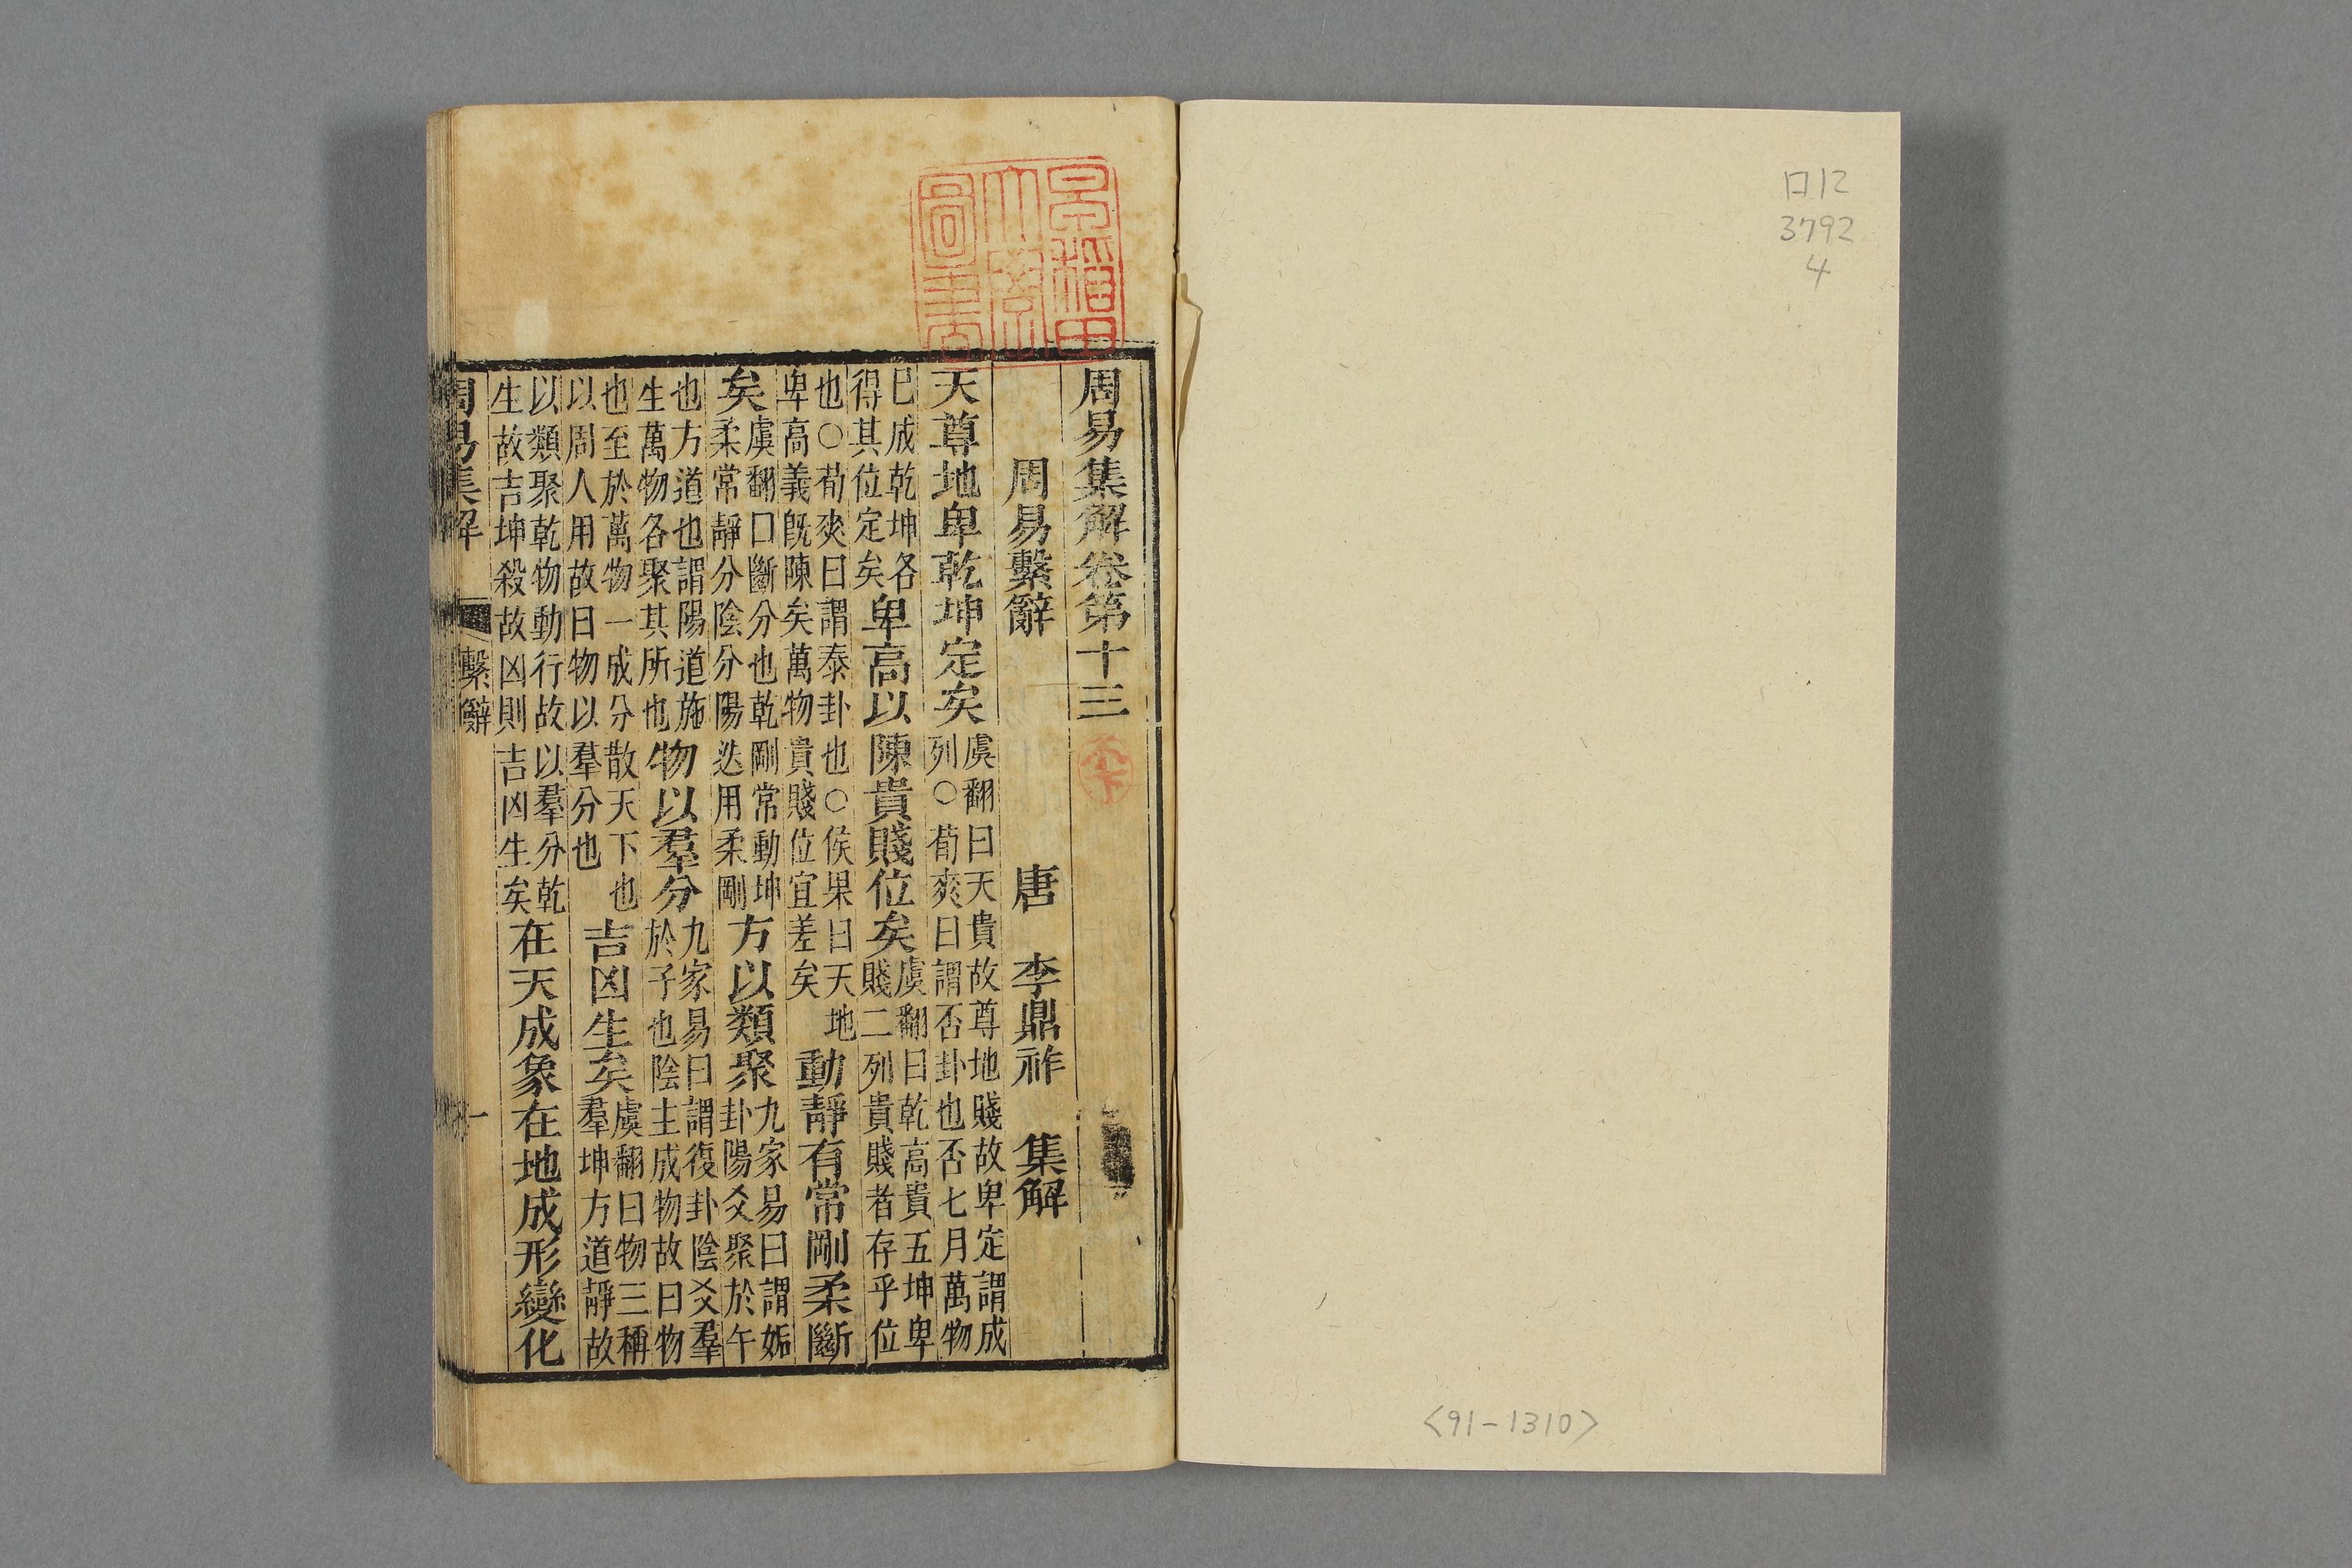 口12
3792
4
<91-1310>
早稻田
大學
圖書
周易集解卷第十三
周易繫辭 唐 李鼎祚 集解
天尊地卑乾坤定矣
虞翻曰天貴故尊地賤故卑定謂成
列○荀爽曰謂否卦也否七月萬物
已成乾坤各
得其位定矣
卑高以陳貴賤位矣
虞翻曰乾高貴五坤卑
賤二列貴賤者存乎位
也○荀爽曰謂泰卦也○侯果曰天地
卑高義旣陳矣萬物貴賤位宜差矣
動靜有常剛柔斷
矣
虞翻曰斷分也乾剛常動坤
柔常靜分陰分陽迭用柔剛
方以類聚
九家易曰謂姤
卦陽爻聚於午
也方道也謂陽道施
生萬物各聚其所也
物以羣分
九家易曰謂復卦陰爻羣
於子也陰主成物故曰物
也至於萬物一成分散天下也
以周人用故曰物以羣分也
吉凶生矣
虞翻曰物三稱
羣坤方道靜故
以類聚乾物動行故以羣分乾
生故吉坤殺故凶則吉凶生矣
在天成象在地成形變化
周易集解 繫辭 一